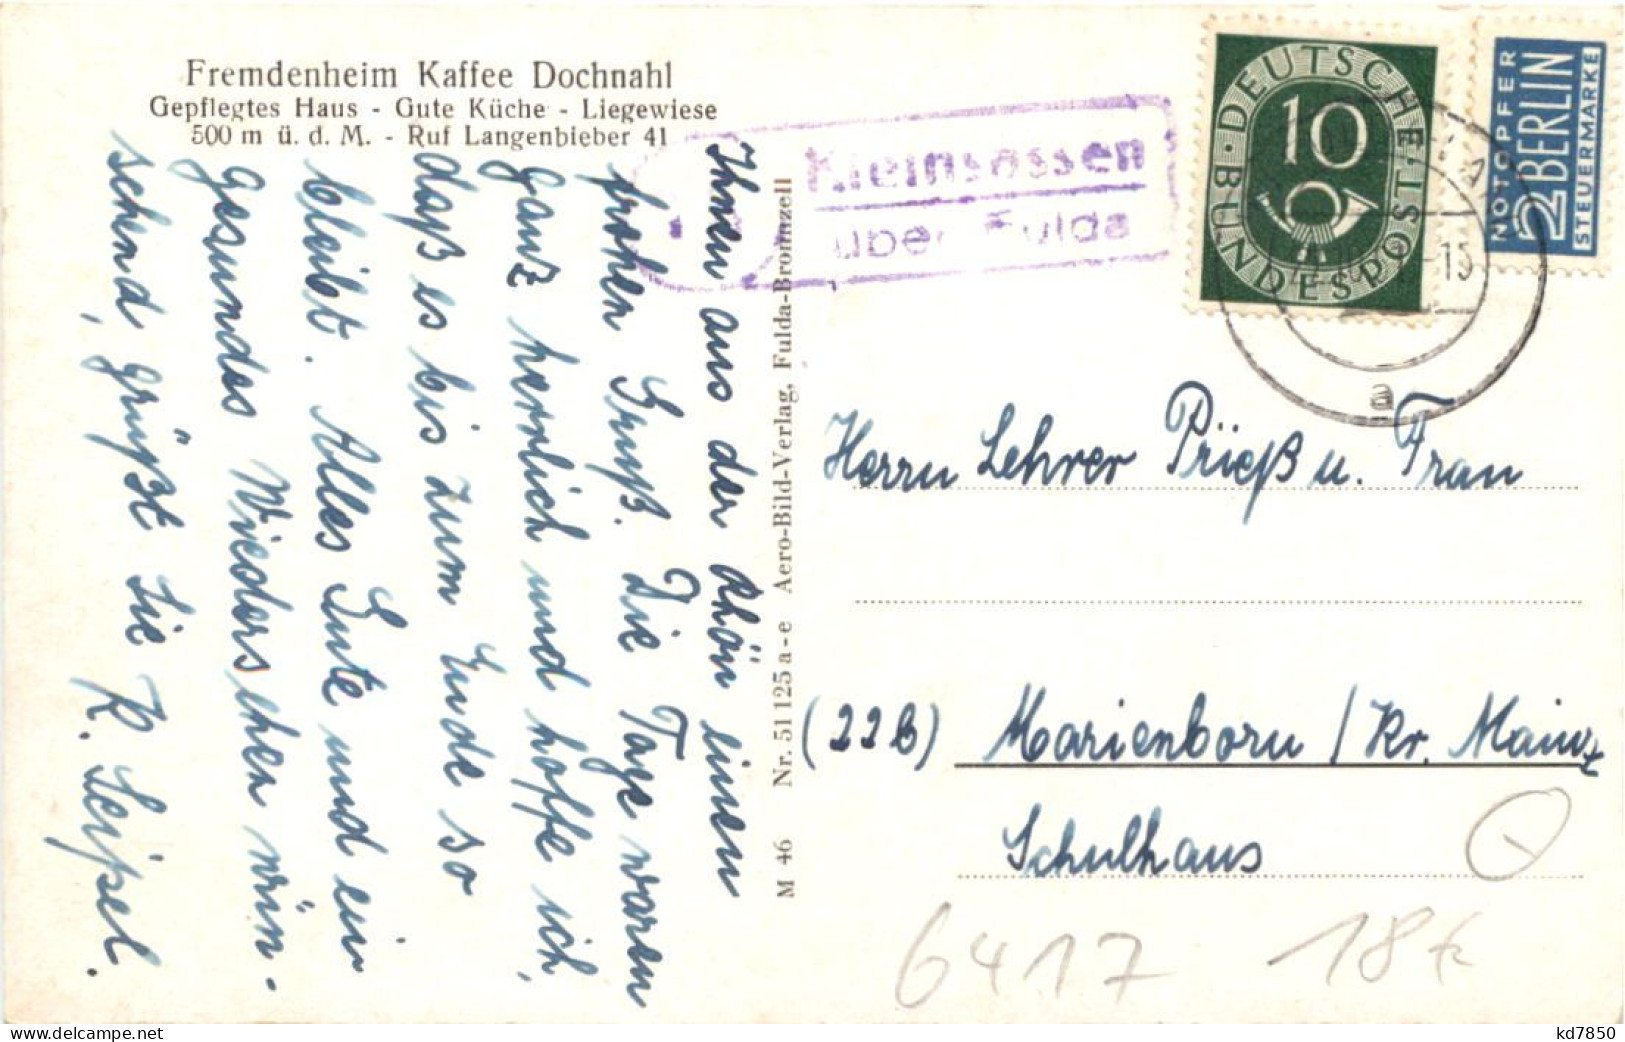 Fremdenheim Kaffee Dochnahl
Gepflegtes Haus - Gute Küche - Liegewiese
500 m ü. d. M. - Ruf Langenbieber 41
Ihnen aus der Rhön einen
frohen Gruß. Die Tage waren
ganz herrlich und hoffe ich,
daß es bis zum Ende so
bleibt. Alles Gute und ein
gesundes Wiedersehen wün-
schend, grüßt Sie K. Leipel.
M 46 Nr. 51 125 a-e Aero-Bild-Verlag, Fulda-Bronnzell
Kleinsassen
über Fulda
DEUTSCHE BUNDESPOST
10
NOTOPFER
2 BERLIN
STEUERMARKE
15
a
Herrn Lehrer Prieß u. Frau
(22b) Marienborn / Kr. Mainz
Schulhaus
6417 18€
www.delcampe.net
kd7850